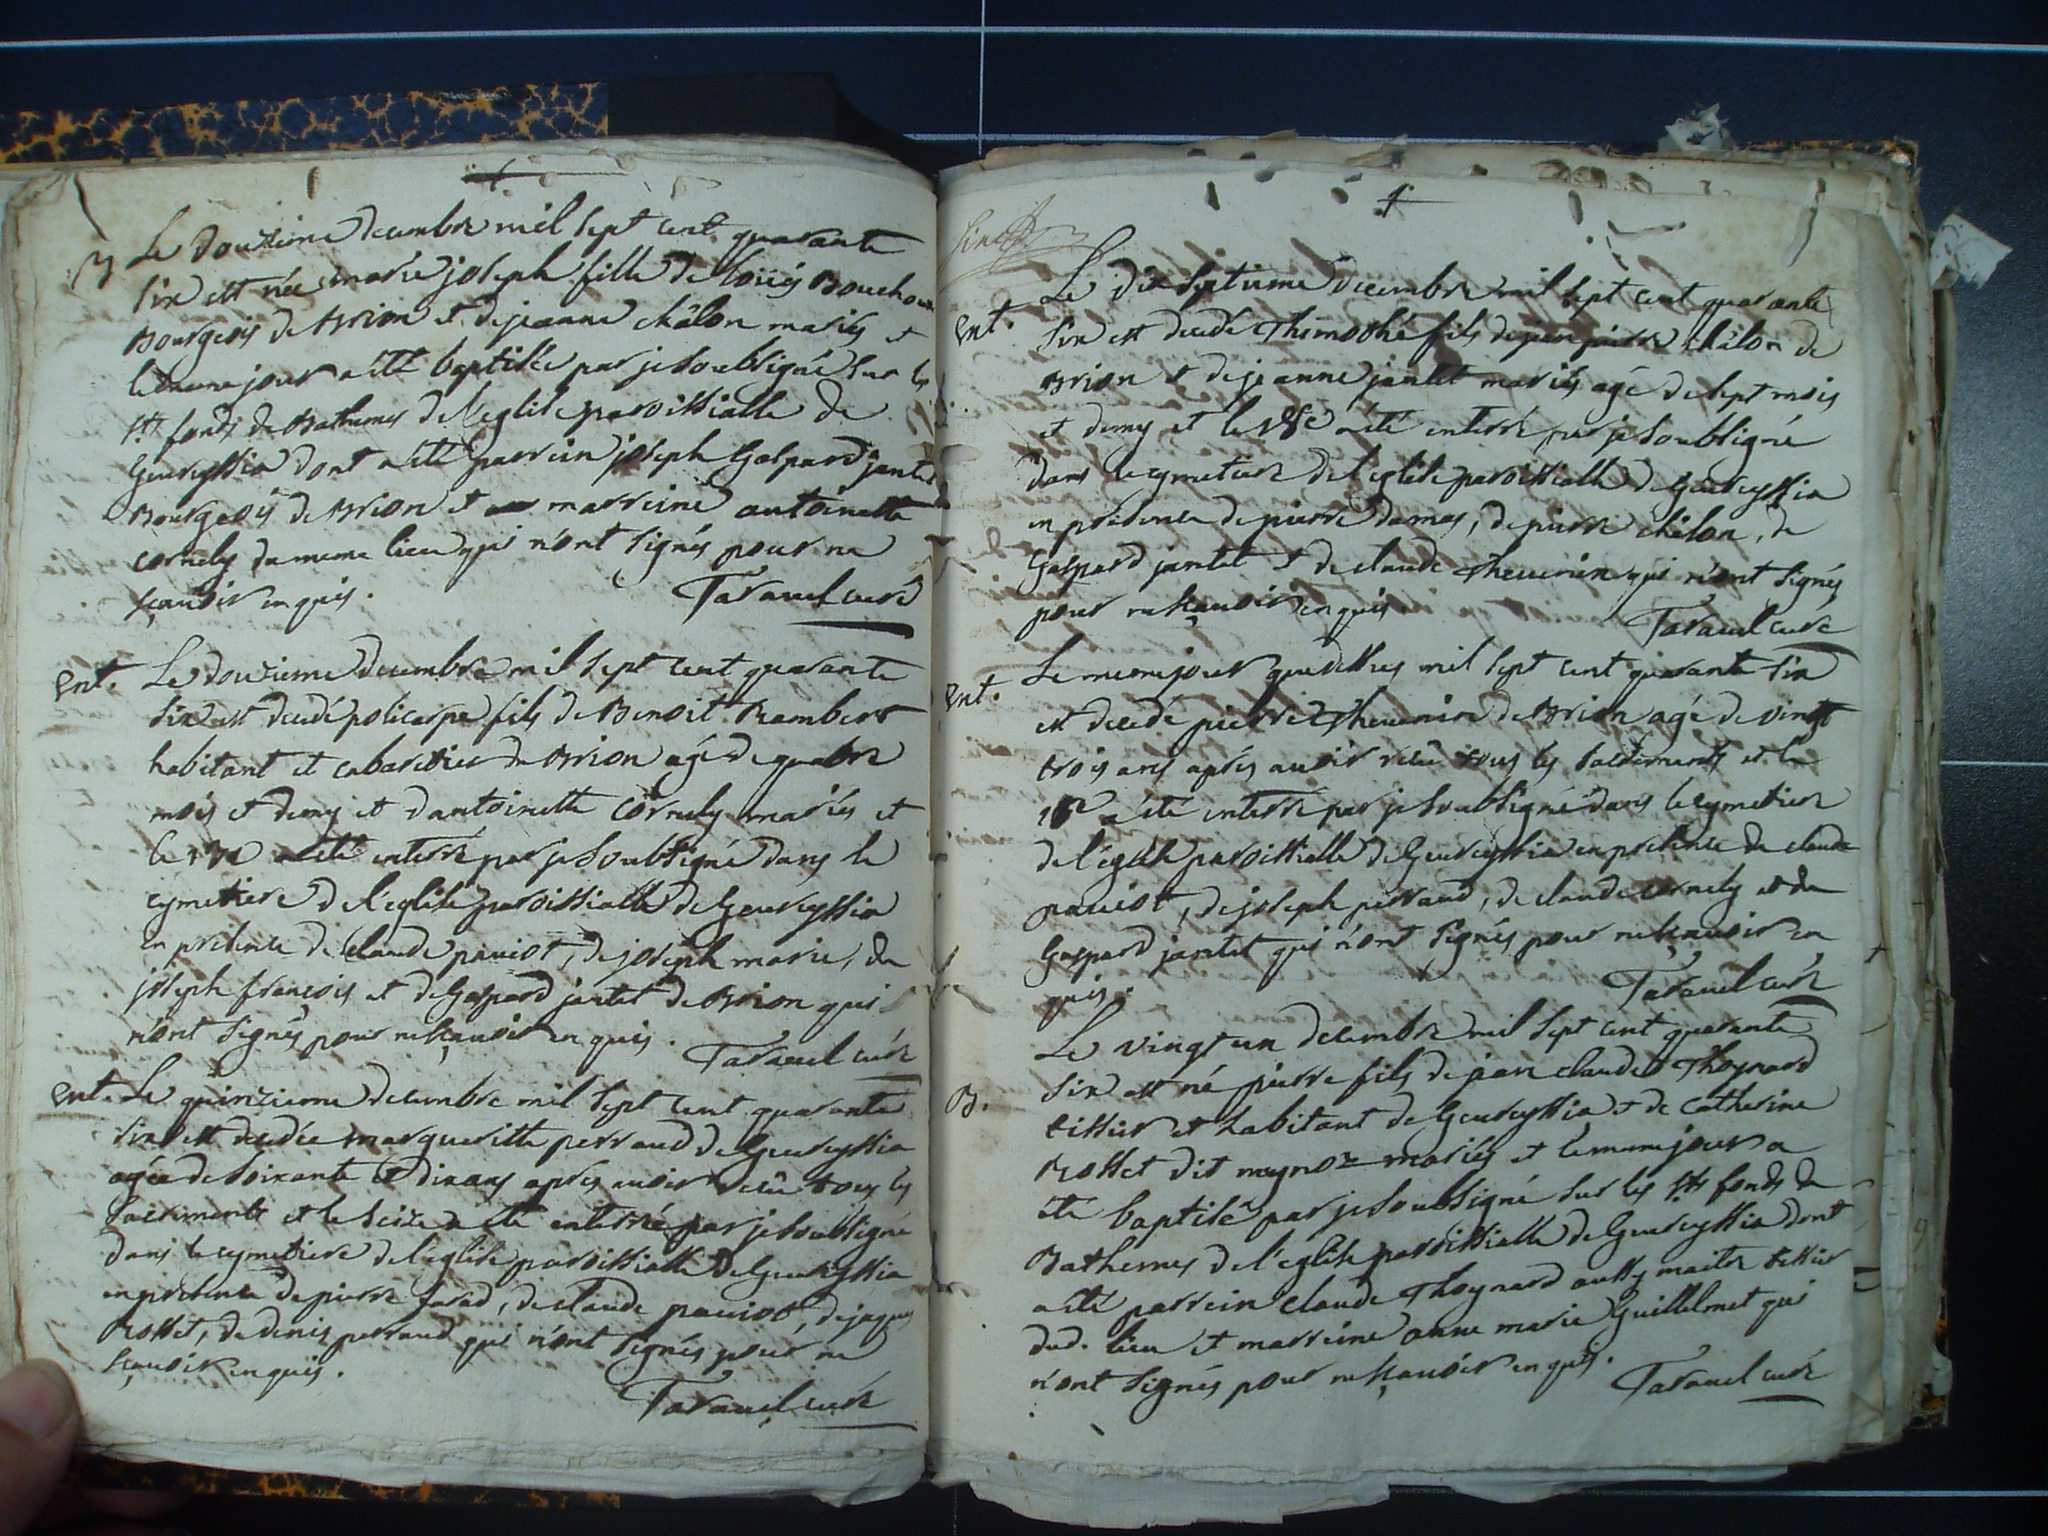 B Le douzieme decembre mil sept cent quarante
six est née marie joseph fille de Loüis Bouchon
Bourgeois de Brion et de jeanne châlon mariés et
le meme jour a été baptisée par je soubsigné sur les
Sts fonds de Bathemes de l'eglise paroissialle de
Geureyssia dont a été parrein joseph Gaspard jantet
Bourgeois de Brion et marreine antoinette
cornely du meme lieu qui n'ont signés pour ne
sçauoir enquis.
Tarauel curé
Ent. Le douzieme decembre mil sept cent quarante
six est decedé policarpe fils de Benoit Rambert
habitant et cabaretier de Brion agé de quatre
mois et demy et d'antoinette Cornely mariés et
le 13e a été enterré par je soubsigné dans le
cymetiere de l'eglise paroissialle de Geureyssia
en presence de claude pauiot, de joseph marie, de
joseph françois et de Gaspard jantet de Brion qui
n'ont signés pour ne sçauoir enquis.
Tarauel curé
Ent. Le quinzieme decembre mil sept cent quarante
six est decedée margueritte perraud de Geureyssia
agée de soixante et dix ans apres auoir receu tous les
sacrements et le seize a été enterrée par je soubsigné
dans le cymetiere de l'eglise paroissialle de Geureyssia
en presence de pierre farad, de claude pauiot, de jaques
Rosset, de denis perraud qui n'ont signés pour ne
sçauoir enquis.
Tarauel curé
Le dix septieme decembre mil sept cent quarante
Ent. six est decedé Thimothé fils de jean pierre châlon de
Brion et de jeanne jantet mariés agé de sept mois
et demy et le 18e a été enterré par je soubsigné
dans le cymetiere de l'eglise paroissialle de Geureyssia
en presence de pierre damas, de pierre châlon, de
Gaspard jantet et de claude Theuenin qui n'ont signés
pour ne sçauoir enquis.
Tarauel curé
Ent. Le meme jour que dessus mil sept cent quarante six
est decedé pierre Theuenin de Brion agé de vingt
trois ans aprés auoir receu tous les sacrements et le
18e a été enterré par je soubsigné dans le cymetiere
de l'église paroissialle de Geureyssia en presence de claude
pauiot, de joseph perraud, de claude cornely et de
Gaspard jantet qui n'ont signés pour ne sçauoir en
quis.
Tarauel curé
Le vingt un decembre mil sept cent quarante
B. six est né pierre fils de jean claude Thoynard
tissier et habitant de Geureyssia et de Catherine
Rosset dit mognoz mariés et le meme jour a
été baptisé par je soubsigné sur les Sts fonds de
Bathemes de l'eglise paroissialle de Geureyssia dont
a été parrein claude Thoynard aussy maitre tissier
dud. lieu et marreine anne marie Guillelmet qui
n'ont signés pour ne sçauoir enquis.
Tarauel curé